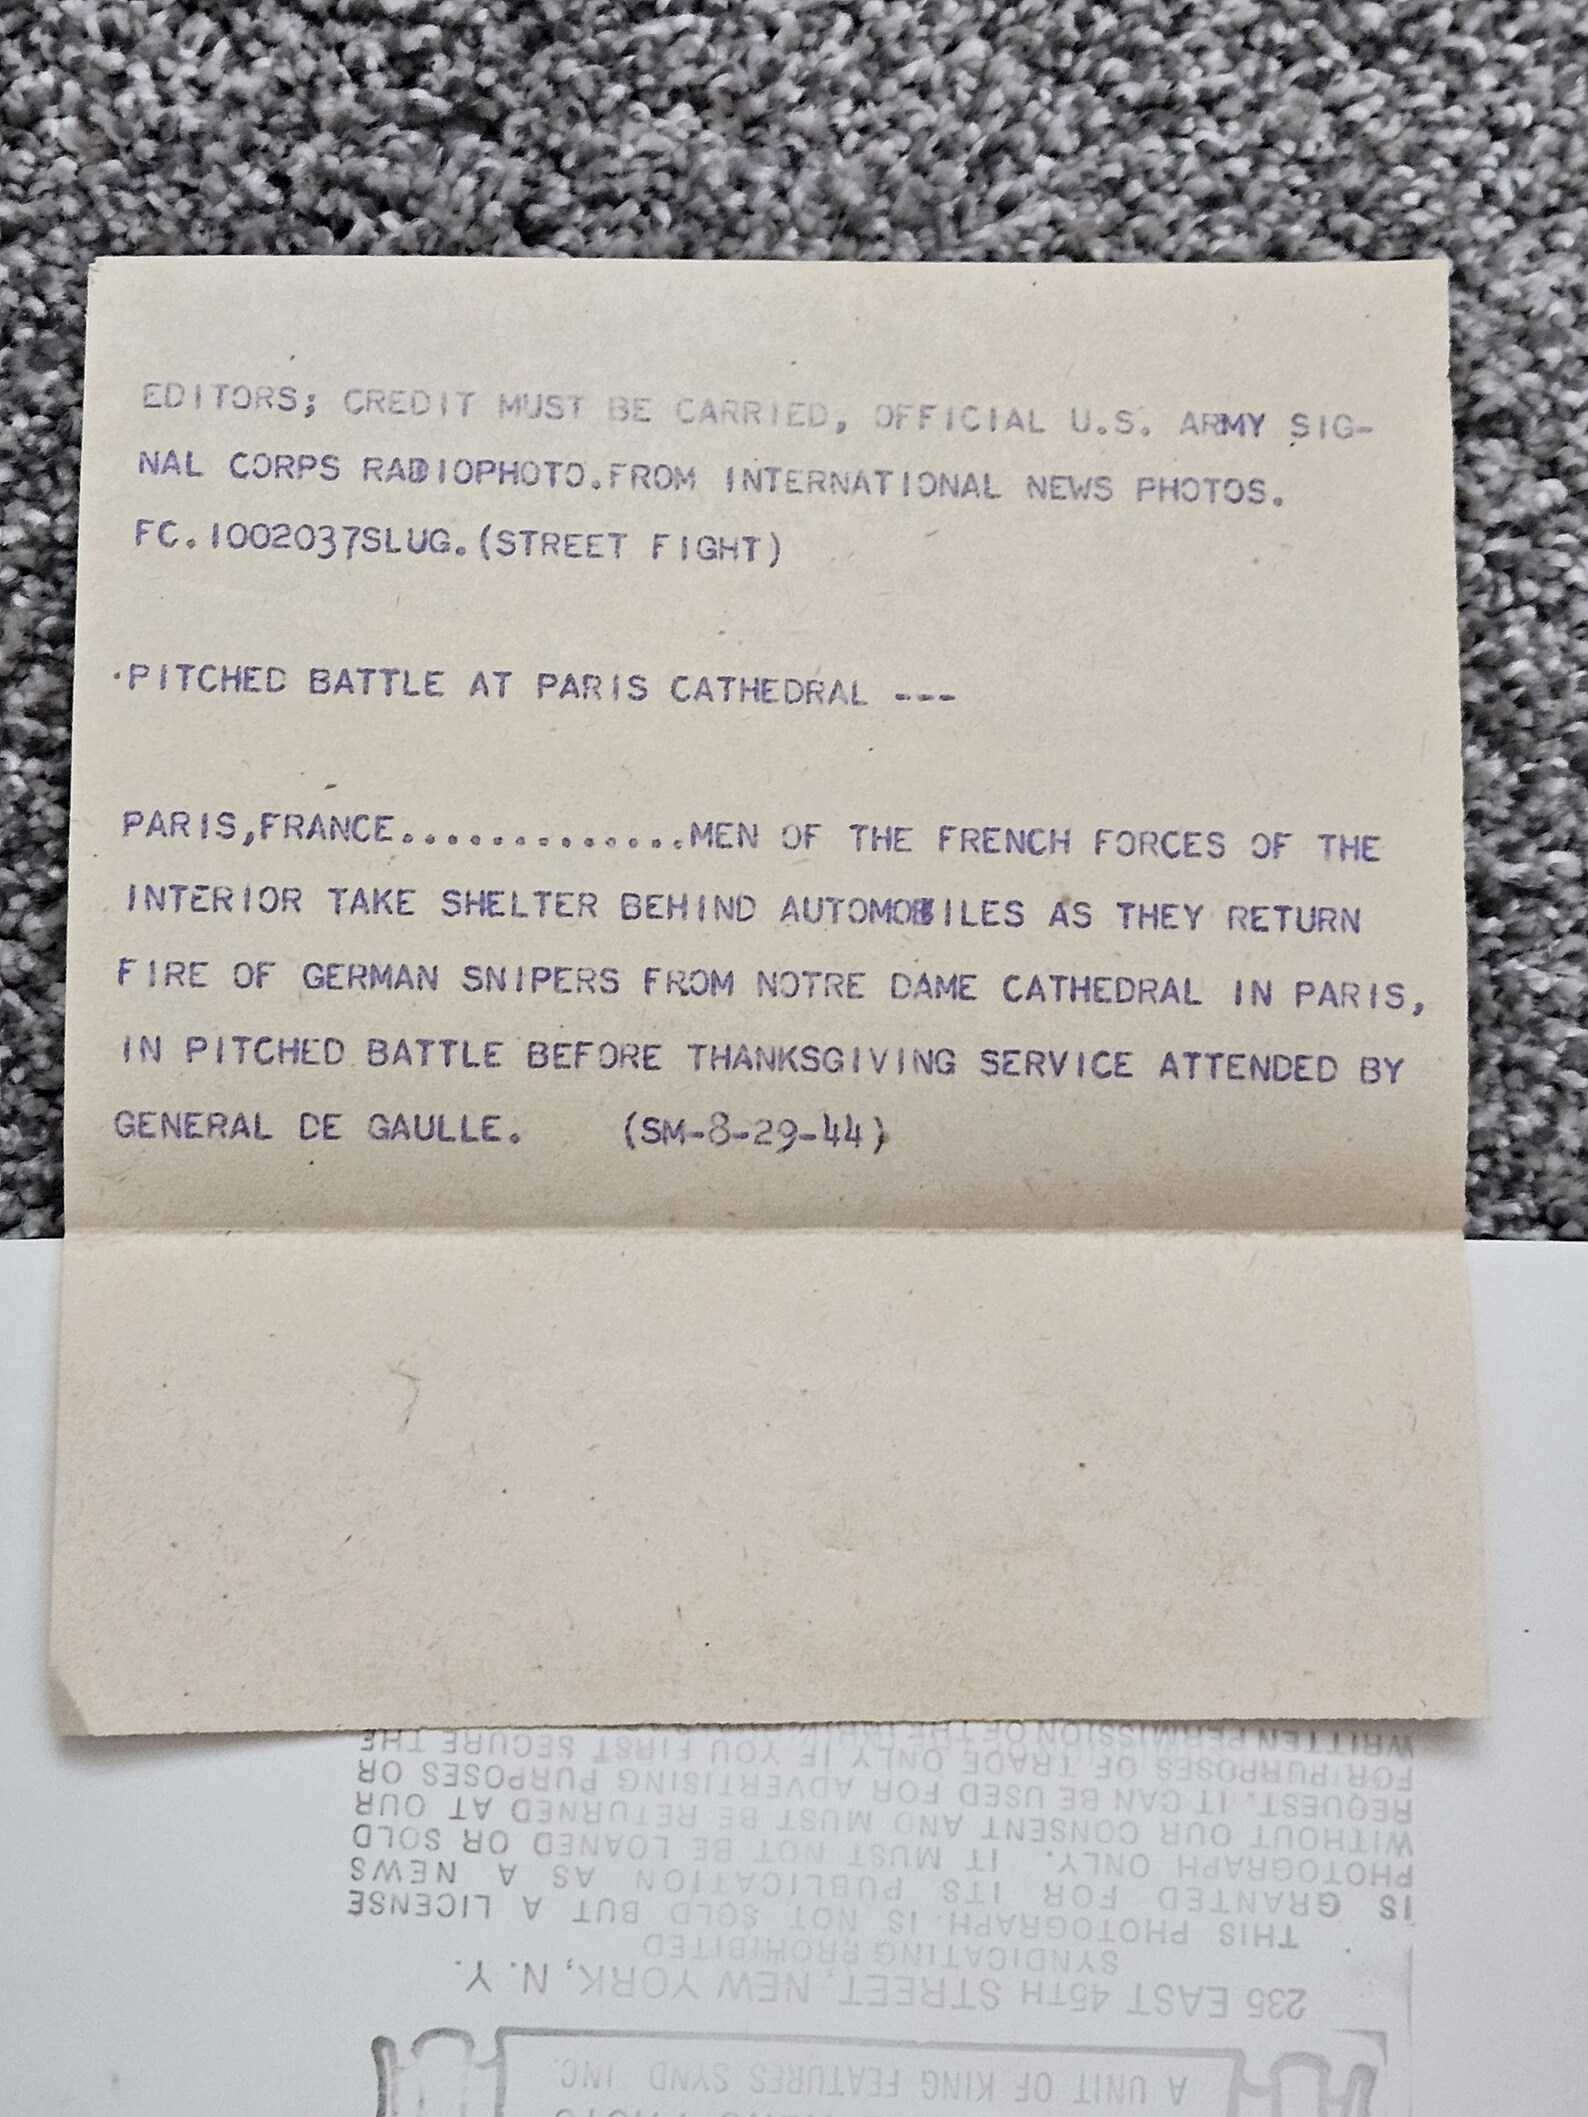 EDITORS; CREDIT MUST BE CARRIED, OFFICIAL U.S. ARMY SIG-
NAL CORPS RADIOPHOTO.FROM INTERNATIONAL NEWS PHOTOS.
FC.1002037SLUG.(STREET FIGHT)
PITCHED BATTLE AT PARIS CATHEDRAL ---
PARIS,FRANCE.............MEN OF THE FRENCH FORCES OF THE
INTERIOR TAKE SHELTER BEHIND AUTOMOBILES AS THEY RETURN
FIRE OF GERMAN SNIPERS FROM NOTRE DAME CATHEDRAL IN PARIS,
IN PITCHED BATTLE BEFORE THANKSGIVING SERVICE ATTENDED BY
GENERAL DE GAULLE. (SM-8-29-44)
A UNIT OF KING FEATURES SYND INC.
235 EAST 45TH STREET, NEW YORK, N.Y.
SYNDICATING PROHIBITED
THIS PHOTOGRAPH IS NOT SOLD BUT A LICENSE
IS GRANTED FOR ITS PUBLICATION AS A NEWS
PHOTOGRAPH ONLY. IT MUST NOT BE LOANED OR SOLD
WITHOUT OUR CONSENT AND MUST BE RETURNED AT OUR
REQUEST. IT CAN BE USED FOR ADVERTISING PURPOSES OR
FOR PURPOSES OF TRADE ONLY IF YOU FIRST SECURE THE
WRITTEN PERMISSION OF THE